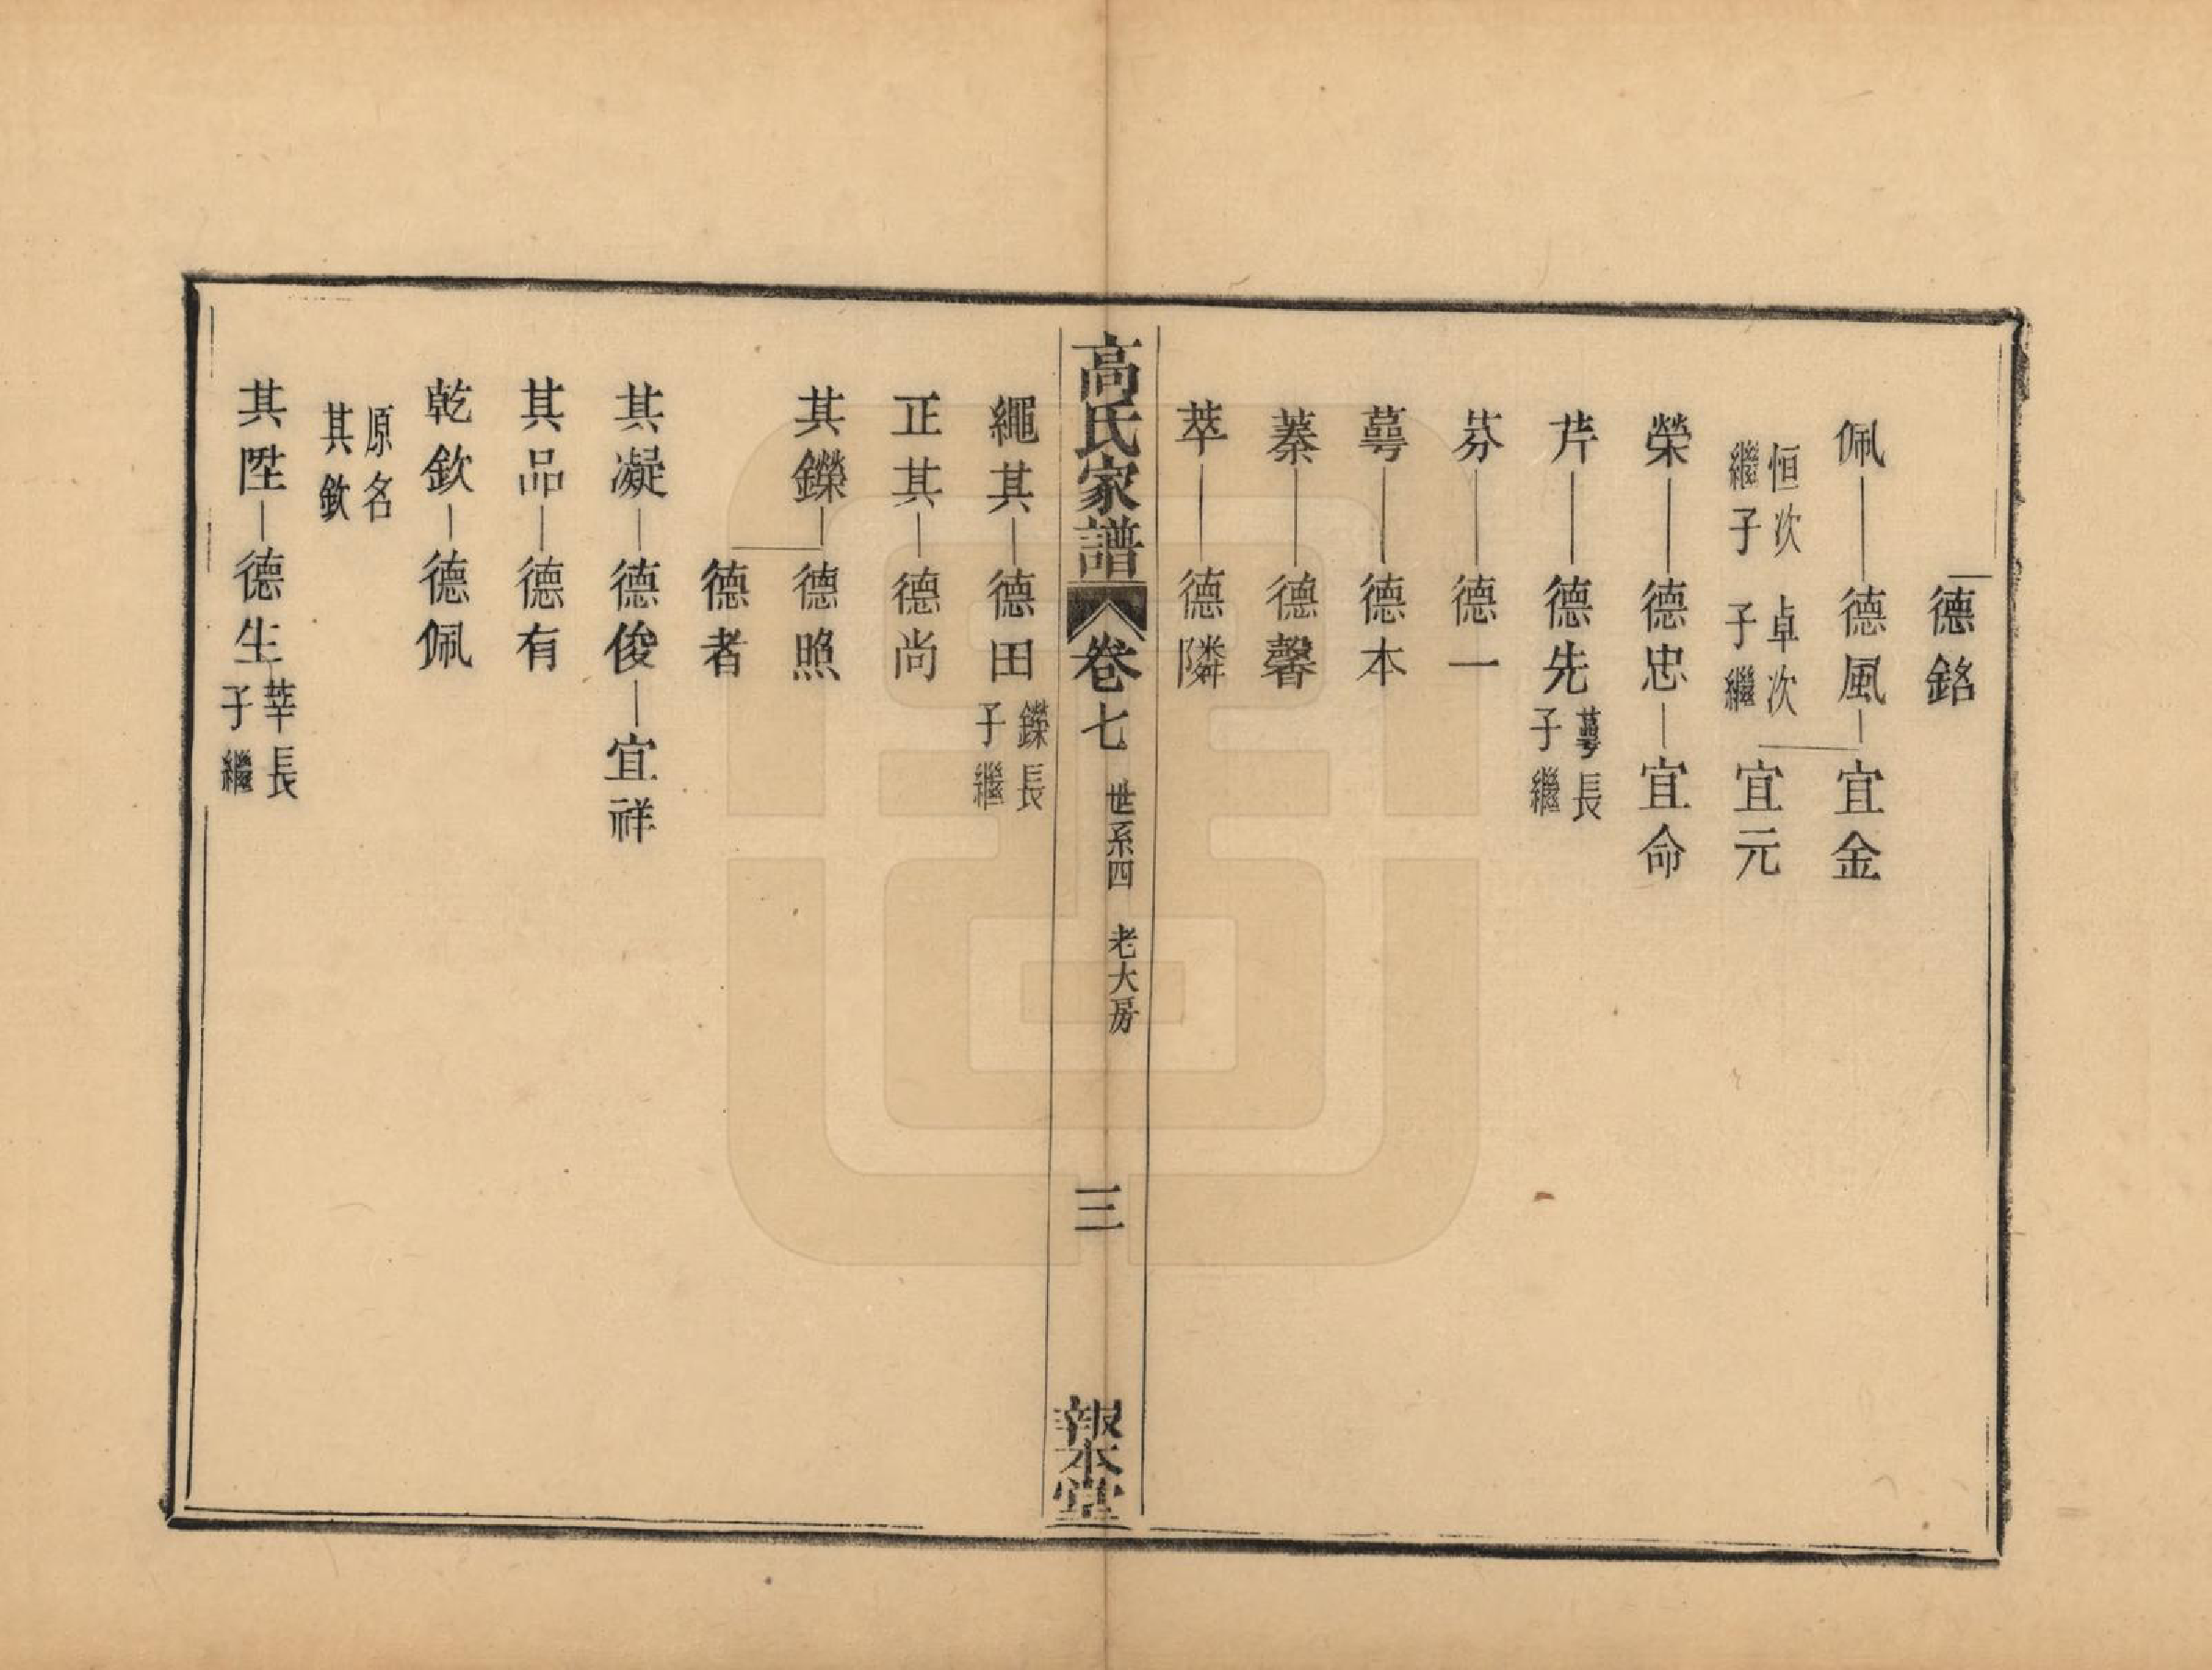 德銘
佩 德風 宜金
恒次繼子 卓次子繼 宜元
榮 德忠 宜命
芹 德先 蕚長子繼
芬 德一
蕚 德本
蓁 德馨
萃 德隣
高氏家譜 卷七 世系四 老大房 三 報本堂
繩其 德田 鑅長子繼
正其 德尚
其鑅 德照
德者
其凝 德俊 宜祥
其品 德有
乾欽 德佩
原名其欽
其陞 德生 莘長子繼